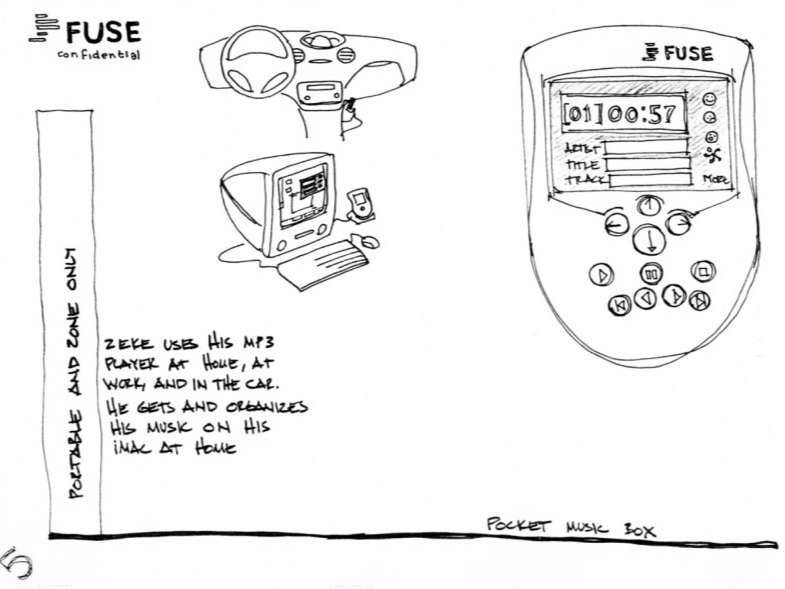 FUSE
confidential
FUSE
[01] 00:57
ARTIST
TITLE
TRACK
MORE
PORTABLE AND ZONE ONLY
ZEKE USES HIS MP3
PLAYER AT HOME, AT
WORK, AND IN THE CAR.
HE GETS AND ORGANIZES
HIS MUSIC ON HIS
iMAC AT HOME
POCKET MUSIC BOX
5